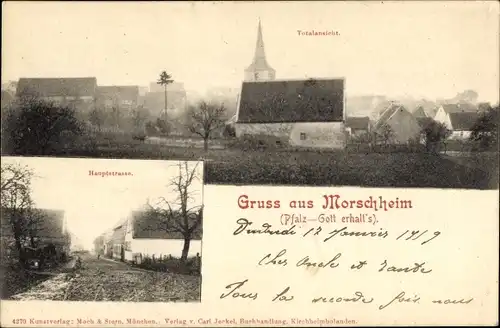 Totalansicht.
Hauptstrasse.
Gruss aus Morschheim
(Pfalz - Gott erhalt's).
17 Janvier 1919
Cher Oncle et Tante
la seconde fois nous
4279 Kunstverlag: Moch & Stern, München. Verlag v. Carl Jaekel, Buchhandlung, Kirchheimbolanden.